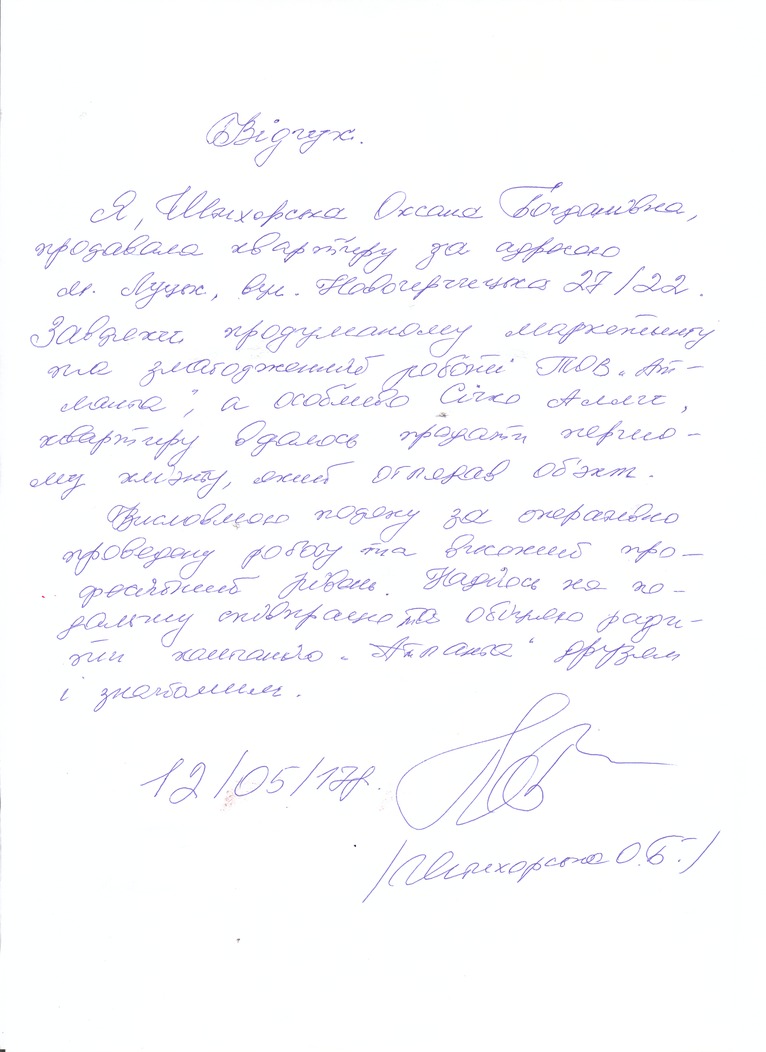 Відгук.
Я, Шпихорська Оксана Богданівна,
продавала квартиру за адресою
м. Луцьк, вул. Новочерчицька 27/22.
Завдяки продуманому маркетингу
та злагодженній роботі ТОВ „Ат-
ланта", а особливо Січко Аллі,
квартиру вдалось продати першо-
му клієнту, який оглядав об'єкт.
Висловлюю подяку за оперативно
проведену роботу та високий про-
фесійний рівень. Надіюсь на по-
дальшу співпрацю та обіцяю ради-
ти компанію „Атланта" друзям
і знайомим.
12/05/17р.
/ О.Б./